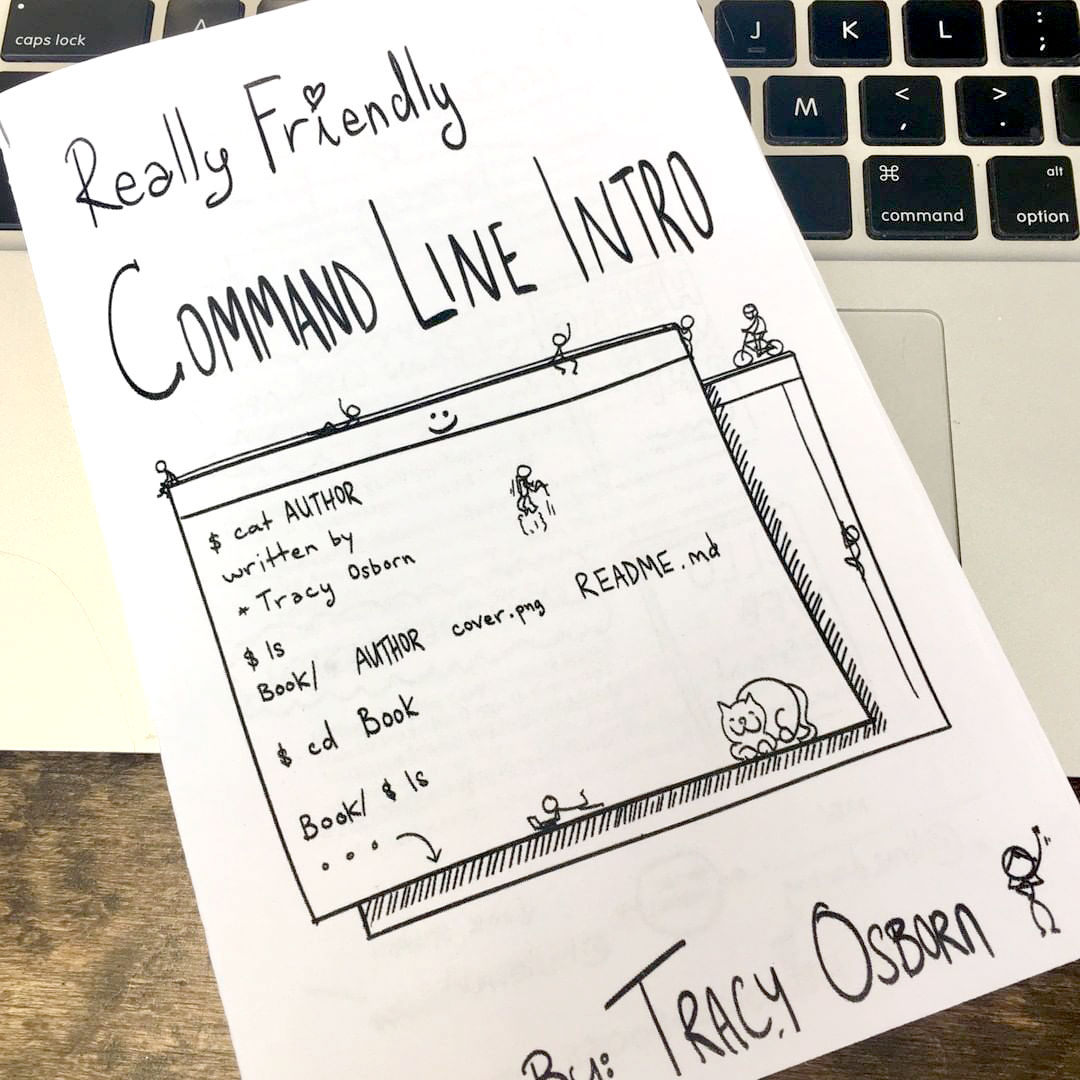 caps lock
A
J
K
L
:
;
M
<
,
>
.
⌘
command
alt
option
Really Friendly
COMMAND LINE INTRO
$ cat AUTHOR
written by
* Tracy Osborn
$ ls
Book/ AUTHOR cover.png README.md
$ cd Book
Book/ $ ls
...
By: TRACY OSBORN